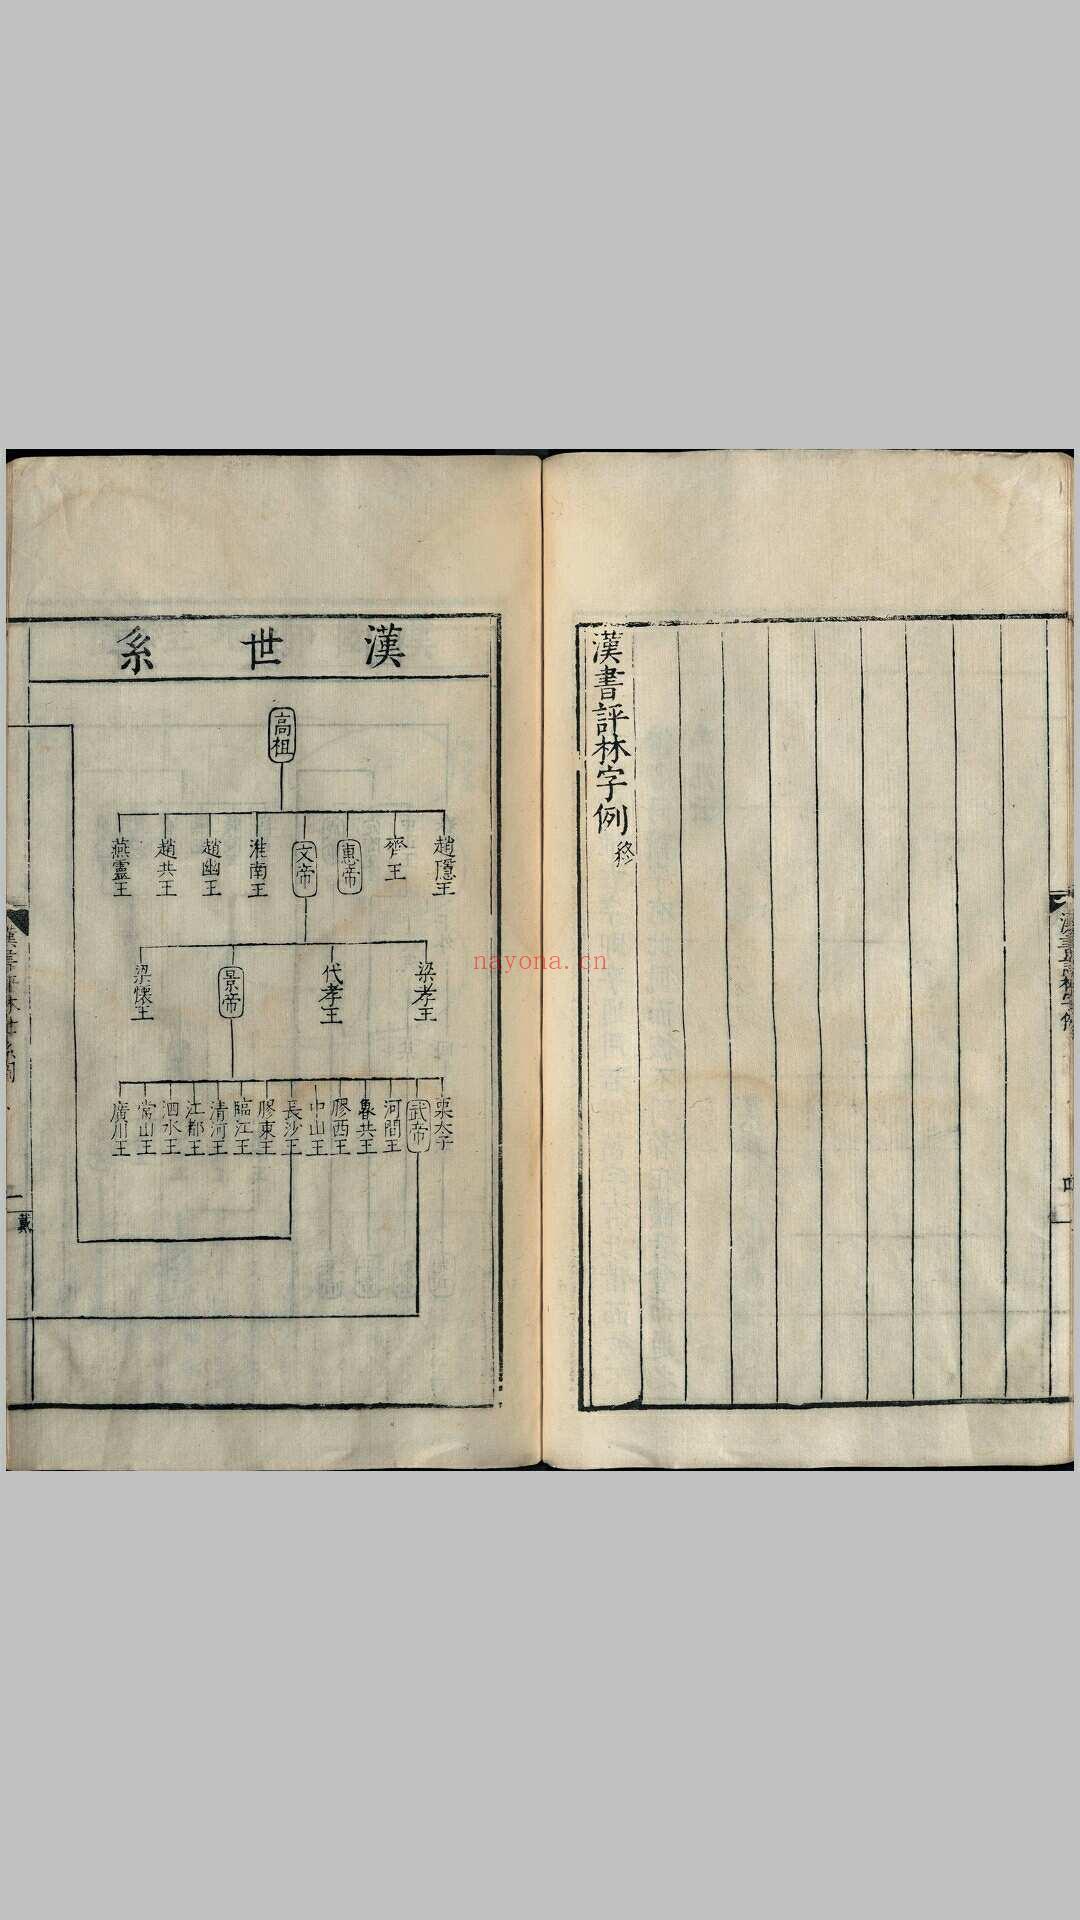 漢書評林字例終
漢世系
高祖
趙隱王
齊王
惠帝
文帝
淮南王
趙幽王
趙共王
燕靈王
梁孝王
代孝王
景帝
梁懷王
栗太子
武帝
河間王
魯共王
膠西王
中山王
長沙王
膠東王
臨江王
清河王
江都王
泗水王
常山王
廣川王
nayona.cn